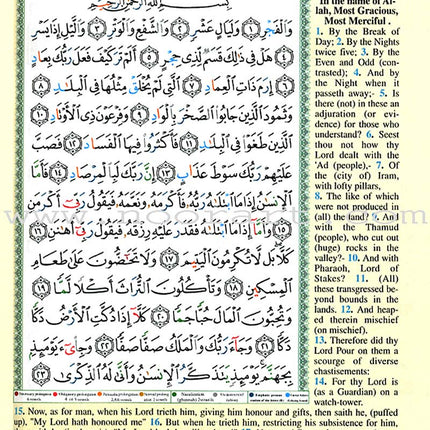 بِسْمِ اللَّهِ الرَّحْمَٰنِ الرَّحِيمِ
وَالْفَجْرِ ١ وَلَيَالٍ عَشْرٍ ٢ وَالشَّفْعِ وَالْوَتْرِ ٣ وَاللَّيْلِ إِذَا يَسْرِ
٤ هَلْ فِي ذَٰلِكَ قَسَمٌ لِّذِي حِجْرٍ ٥ أَلَمْ تَرَ كَيْفَ فَعَلَ رَبُّكَ بِعَادٍ
٦ إِرَمَ ذَاتِ الْعِمَادِ ٧ الَّتِي لَمْ يُخْلَقْ مِثْلُهَا فِي الْبِلَادِ ٨
وَثَمُودَ الَّذِينَ جَابُوا الصَّخْرَ بِالْوَادِ ٩ وَفِرْعَوْنَ ذِي الْأَوْتَادِ ١٠
الَّذِينَ طَغَوْا فِي الْبِلَادِ ١١ فَأَكْثَرُوا فِيهَا الْفَسَادَ ١٢ فَصَبَّ
عَلَيْهِمْ رَبُّكَ سَوْطَ عَذَابٍ ١٣ إِنَّ رَبَّكَ لَبِالْمِرْصَادِ ١٤ فَأَمَّا
الْإِنسَانُ إِذَا مَا ابْتَلَاهُ رَبُّهُ فَأَكْرَمَهُ وَنَعَّمَهُ فَيَقُولُ رَبِّي أَكْرَمَنِ
١٥ وَأَمَّا إِذَا مَا ابْتَلَاهُ فَقَدَرَ عَلَيْهِ رِزْقَهُ فَيَقُولُ رَبِّي أَهَانَنِ ١٦
كَلَّا بَل لَّا تُكْرِمُونَ الْيَتِيمَ ١٧ وَلَا تَحَاضُّونَ عَلَىٰ طَعَامِ
الْمِسْكِينِ ١٨ وَتَأْكُلُونَ التُّرَاثَ أَكْلًا لَّمًّا ١٩
وَتُحِبُّونَ الْمَالَ حُبًّا جَمًّا ٢٠ كَلَّا إِذَا دُكَّتِ الْأَرْضُ دَكًّا
دَكًّا ٢١ وَجَاءَ رَبُّكَ وَالْمَلَكُ صَفًّا صَفًّا ٢٢ وَجِايءَ يَوْمَئِذٍ
بِجَهَنَّمَ يَوْمَئِذٍ يَتَذَكَّرُ الْإِنسَانُ وَأَنَّىٰ لَهُ الذِّكْرَىٰ ٢٣
In the name of Al-
lah, Most Gracious,
Most Merciful .
1. By the Break of
Day; 2. By the Nights
twice five; 3. By the
Even and Odd (con-
trasted); 4. And by
the Night when it
passeth away;- 5. Is
there (not) in these an
adjuration (or evi-
dence) for those who
understand? 6. Seest
thou not how thy
Lord dealt with the
'Ad (people),- 7. Of
the (city of) Iram,
with lofty pillars,
8. The like of which
were not produced in
(all) the land? 9. And
with the Thamud
(people), who cut out
(huge) rocks in the
valley?- 10. And with
Pharaoh, Lord of
Stakes? 11. (All)
these transgressed be-
yond bounds in the
lands. 12. And heap-
ed therein mischief
(on mischief).
13. Therefore did thy
Lord Pour on them a
scourge of diverse
chastisements:
14. For thy Lord is
(as a Guardian) on a
watch-tower.
15. Now, as for man, when his Lord trieth him, giving him honour and gifts, then saith he, (puffed
up), "My Lord hath honoured me" 16. But when he trieth him, restricting his subsistence for him,